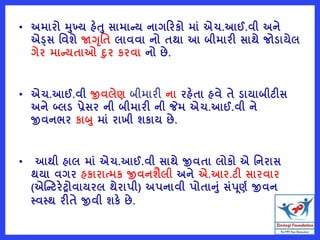 • અમારો મુખ્ય હેતુ સામાન્ય નાગરિકો માં એચ.આઈ.વી અને
એડ્સ વિશે જાગૃતિ લાવવા નો તથા આ બીમારી સાથે જોડાયેલ
ગેર માન્યતાઓ દુર કરવા નો છે.
• એચ.આઈ.વી જીવલેણ બીમારી ના રહેતા હવે તે ડાયાબીટીસ
અને બ્લડ પ્રેસર ની બીમારી ની જેમ એચ.આઈ.વી ને
જીવનભર કાબુ માં રાખી શકાય છે.
• આથી હાલ માં એચ.આઈ.વી સાથે જીવતા લોકો એ નિરાસ
થયા વગર હકારાત્મક જીવનશૈલી અને એ.આર.ટી સારવાર
(એન્ટિરેટ્રોવાયરલ થેરાપી) અપનાવી પોતાનું સંપૂર્ણ જીવન
સ્વસ્થ રીતે જીવી શકે છે.